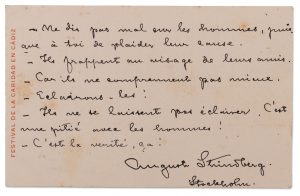 — Ne dis pas mal sur les hommes, puis
que à toi de plaider leur cause.
— Ils frappent au visage de leurs amis.
— Car ils ne comprennent pas mieux.
— Eclairons-les!
— Ils ne se laissent pas éclairer. C'est
une pitié avec les hommes!
— C'est la verité, ça!
August Strindberg.
Stockholm.
FESTIVAL DE LA CARIDAD EN CADIZ